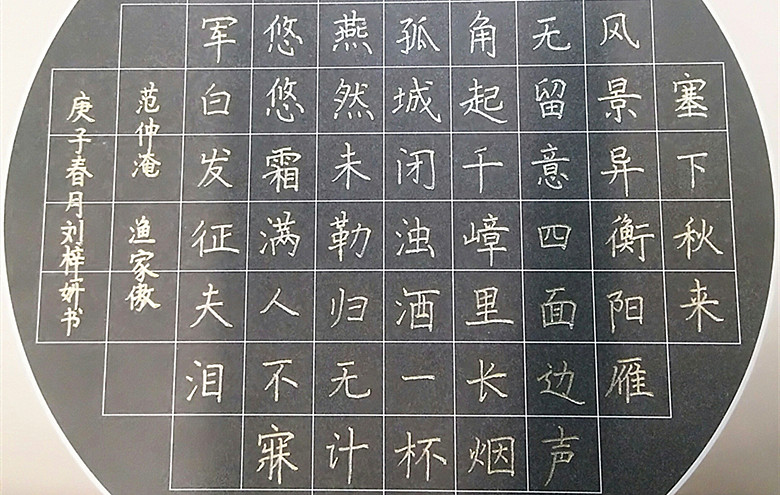 塞下秋来
风景异衡阳雁
无留意四面边声
角起千嶂里长烟
孤城闭浊酒一杯
燕然未勒归无计
悠悠霜满人不寐
军白发征夫泪
范仲淹 渔家傲
庚子春月刘梓妍书